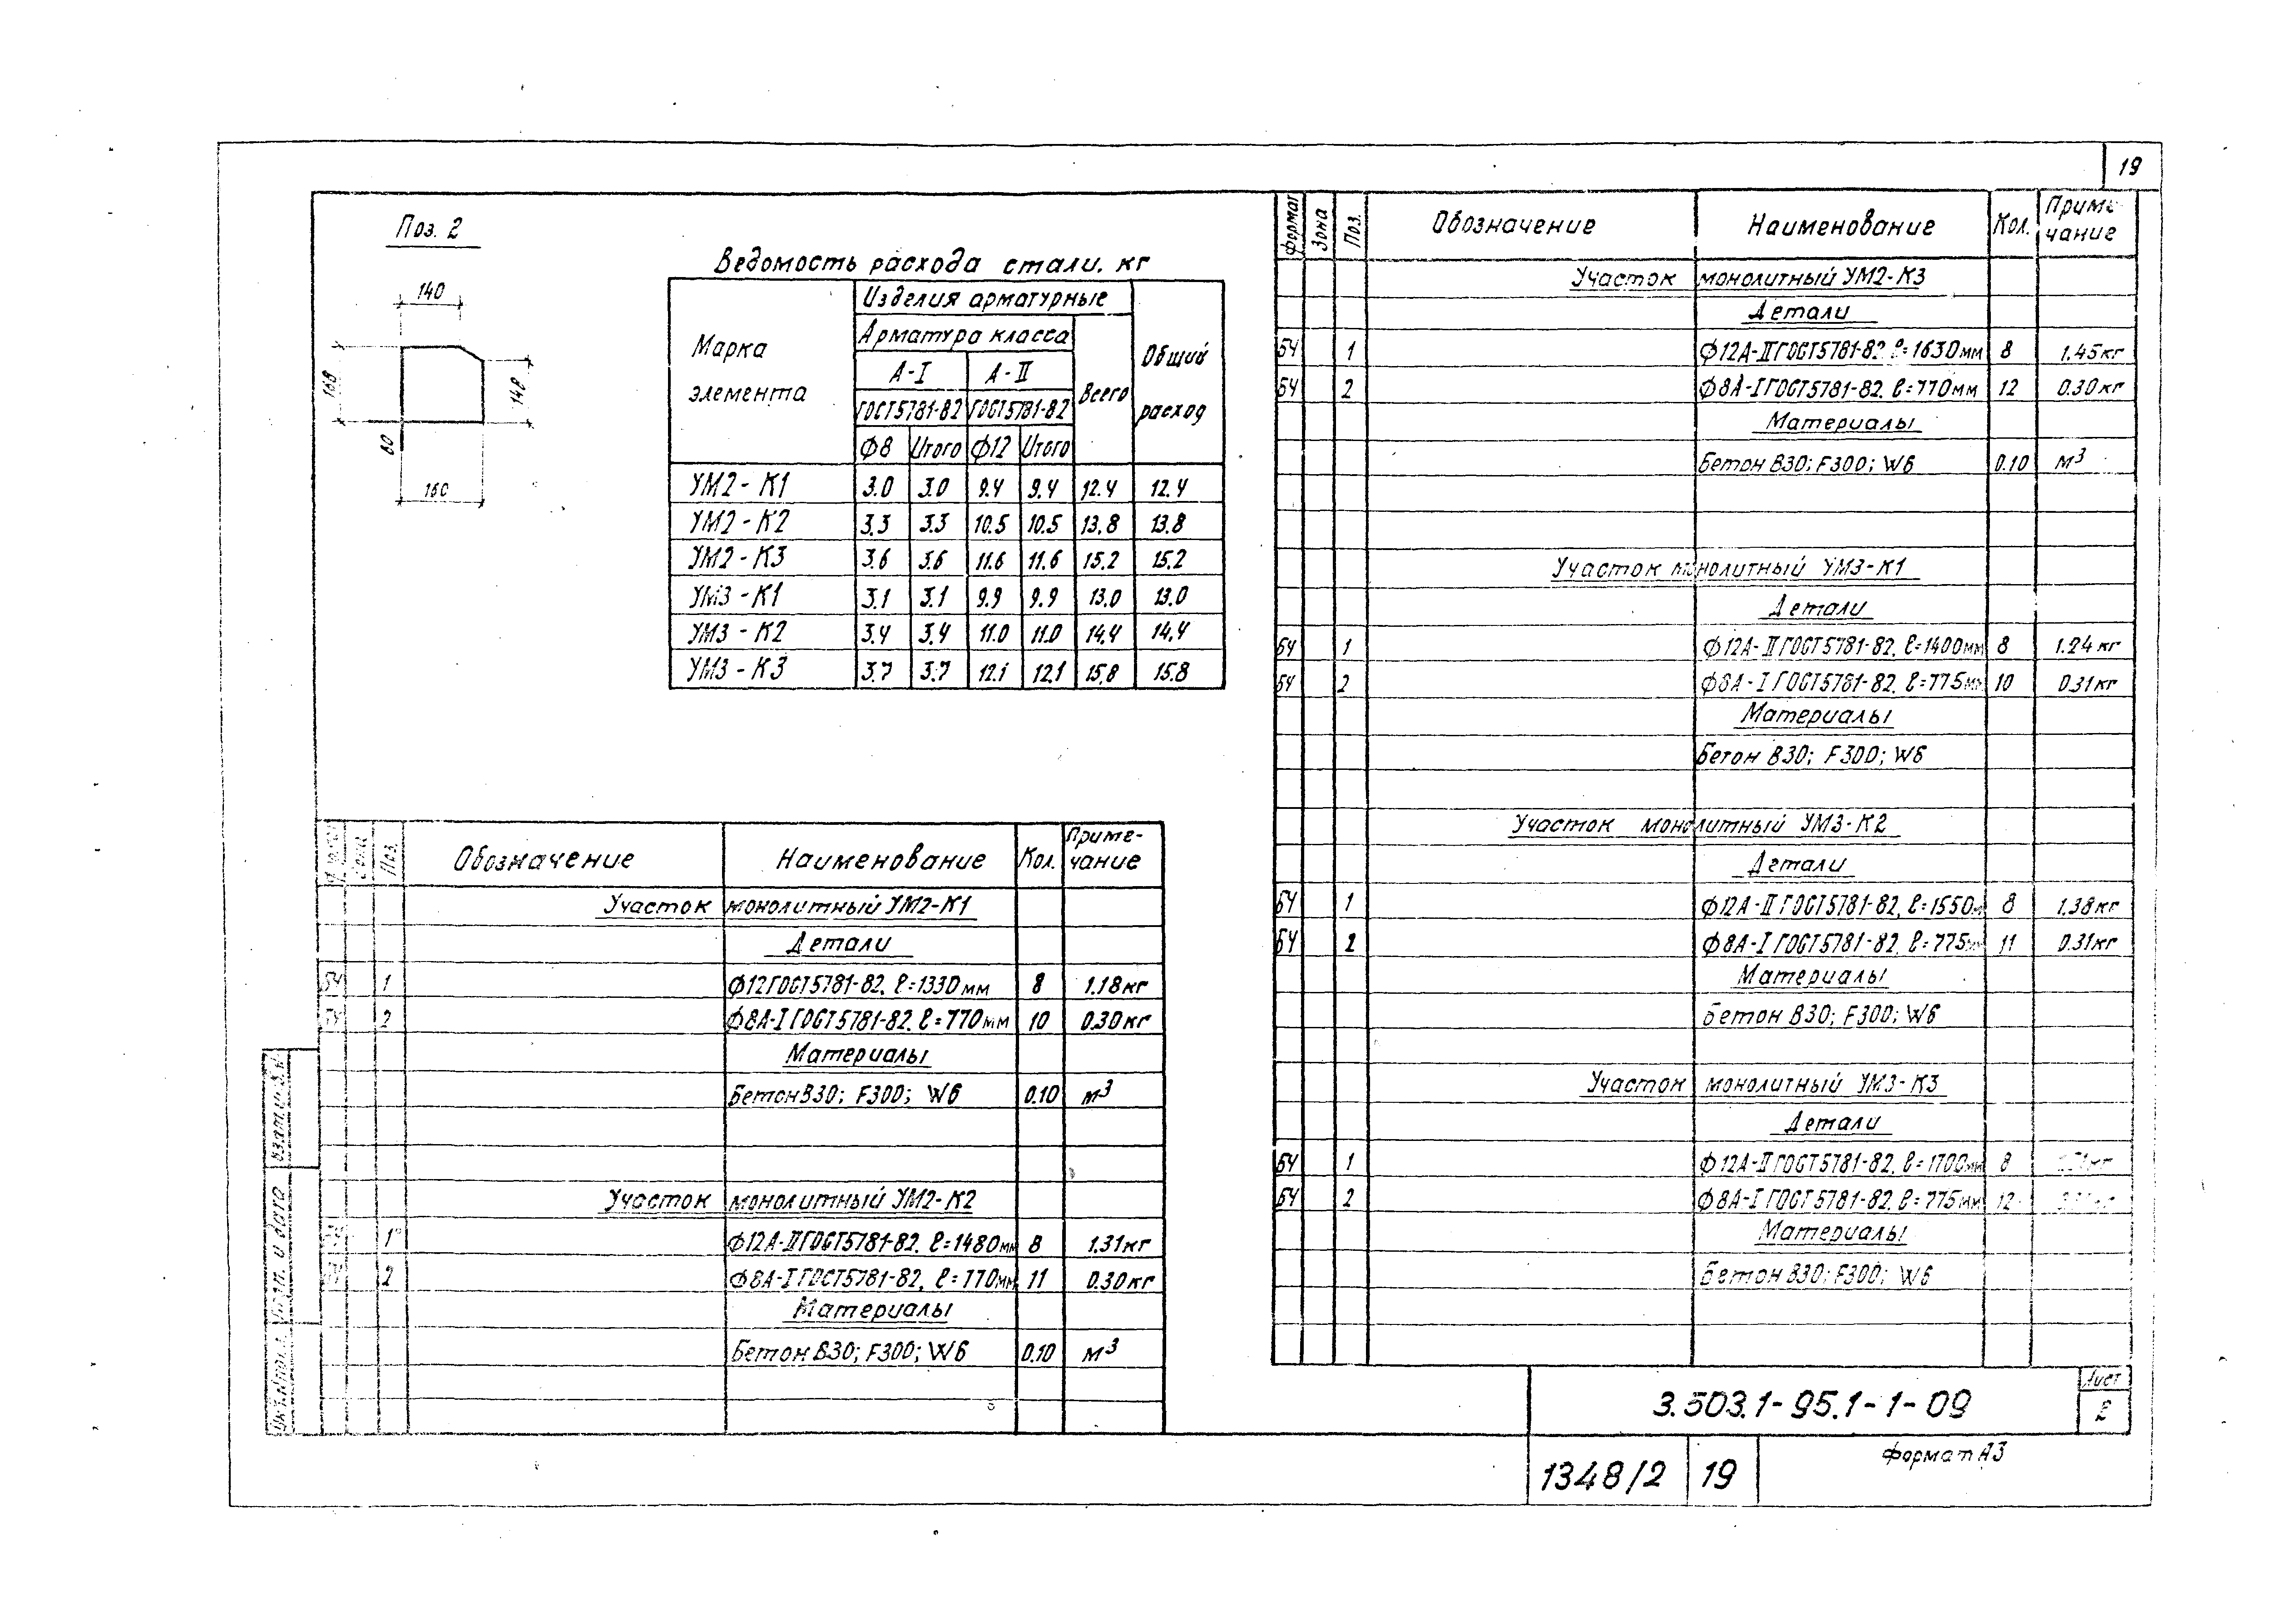 19
Поз. 2
140
168
148
80
160
Ведомость расхода стали, кг
Марка элемента
Изделия арматурные
Арматура класса
А-I А-II
ГОСТ5781-82 ГОСТ5781-82
Ф8 Итого Ф12 Итого
Всего
Общий расход
УМ2-К1 3.0 3.0 9.4 9.4 12.4 12.4
УМ2-К2 3.3 3.3 10.5 10.5 13.8 13.8
УМ2-К3 3.6 3.6 11.6 11.6 15.2 15.2
УМ3-К1 3.1 3.1 9.9 9.9 13.0 13.0
УМ3-К2 3.4 3.4 11.0 11.0 14.4 14.4
УМ3-К3 3.7 3.7 12.1 12.1 15.8 15.8
Поз. Обозначение Наименование Кол. Приме-
чание
Участок монолитный УМ2-К1
Детали
БЧ 1 Ф12ГОСТ5781-82. ℓ=1330мм 8 1.18кг
БЧ 2 Ф8А-I ГОСТ5781-82. ℓ=770мм 10 0.30кг
Материалы
Бетон В30; F300; W6 0.10 м³
Участок монолитный УМ2-К2
1 Ф12А-IIГОСТ5781-82. ℓ=1480мм 8 1.31кг
2 Ф8А-IГОСТ5781-82, ℓ=770мм 11 0.30кг
Материалы
Бетон В30; F300; W6 0.10 м³
Формат Зона Поз. Обозначение Наименование Кол. Приме-
чание
Участок монолитный УМ2-К3
Детали
БЧ 1 Ф12А-IIГОСТ5781-82 ℓ=1630мм 8 1.45кг
БЧ 2 Ф8А-IГОСТ5781-82. ℓ=770мм 12 0.30кг
Материалы
Бетон В30; F300; W6 0.10 м³
Участок монолитный УМ3-К1
Детали
БЧ 1 Ф12А-IIГОСТ5781-82. ℓ=1400мм 8 1.24кг
БЧ 2 Ф8А-I ГОСТ5781-82. ℓ=775мм 10 0.31кг
Материалы
Бетон В30; F300; W6
Участок монолитный УМ3-К2
Детали
БЧ 1 Ф12А-IIГОСТ5781-82, ℓ=1550м 8 1.38кг
БЧ 2 Ф8А-I ГОСТ5781-82. ℓ=775мм 11 0.31кг
Материалы
Бетон В30; F300; W6
Участок монолитный УМ3-К3
Детали
БЧ 1 Ф12А-IIГОСТ5781-82. ℓ=1700мм 8
БЧ 2 Ф8А-I ГОСТ5781-82. ℓ=775мм 12
Материалы
Бетон В30; F300; W6
Взам.инв.№
Подп. и дата
Инв.№подл.
3.503.1-95.1-1-09
Лист
2
1348/2 19
Формат А3